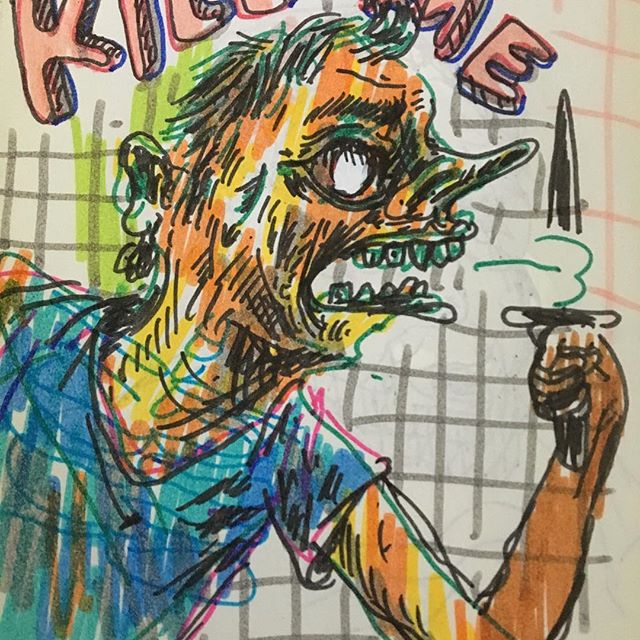 KILL ME